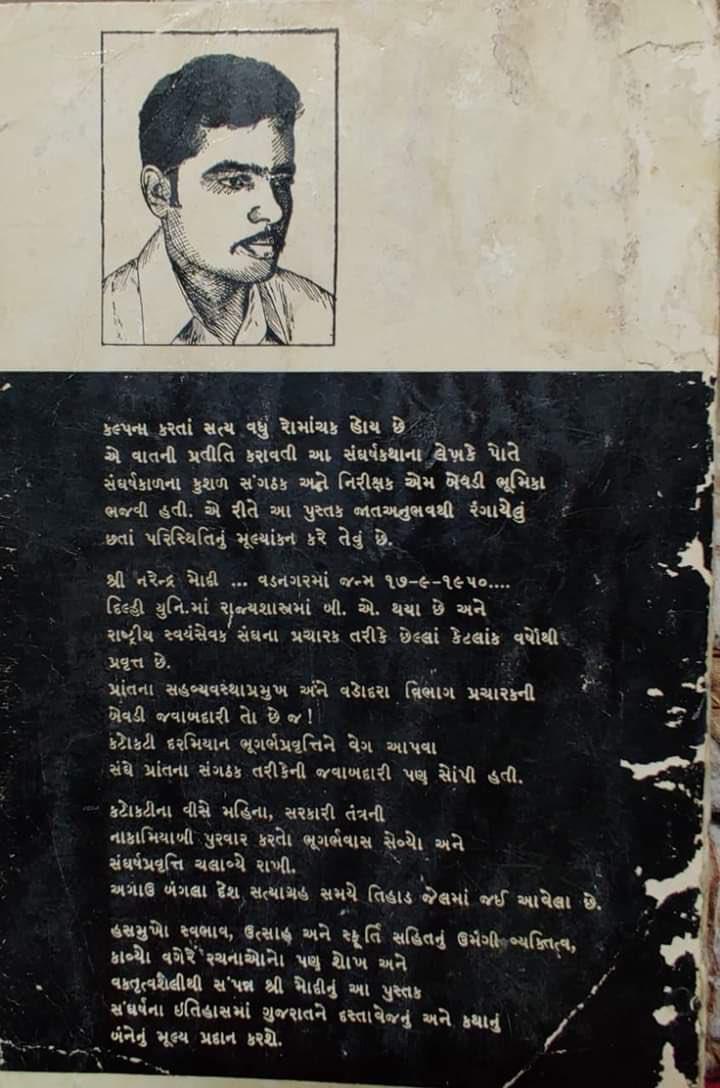 કલ્પના કરતાં સત્ય વધુ રોમાંચક હોય છે
એ વાતની પ્રતીતિ કરાવતી આ સંઘર્ષકથાના લેખકે પોતે
સંઘર્ષકાળના કુશળ સંગઠક અને નિરીક્ષક એમ બેવડી ભૂમિકા
ભજવી હતી. એ રીતે આ પુસ્તક જાતઅનુભવથી રંગાયેલું
છતાં પરિસ્થિતિનું મૂલ્યાંકન કરે તેવું છે.
શ્રી નરેન્દ્ર મોદી ... વડનગરમાં જન્મ ૧૭-૯-૧૯૫૦....
દિલ્હી યુનિ.માં રાજ્યશાસ્ત્રમાં બી. એ. થયા છે અને
રાષ્ટ્રીય સ્વયંસેવક સંઘના પ્રચારક તરીકે છેલ્લાં કેટલાંક વર્ષોથી
પ્રવૃત્ત છે.
પ્રાંતના સહવ્યવસ્થાપ્રમુખ અને વડોદરા વિભાગ પ્રચારકની
બેવડી જવાબદારી તો છે જ !
કટોકટી દરમિયાન ભૂગર્ભપ્રવૃત્તિને વેગ આપવા
સંઘે પ્રાંતના સંગઠક તરીકેની જવાબદારી પણ સોંપી હતી.
કટોકટીના વીસે મહિના, સરકારી તંત્રની
નાકામિયાબી પુરવાર કરતો ભૂગર્ભવાસ સેવ્યો અને
સંઘર્ષપ્રવૃત્તિ ચલાવ્યે રાખી.
અગાઉ બંગલા દેશ સત્યાગ્રહ સમયે તિહાડ જેલમાં જઈ આવેલા છે.
હસમુખો સ્વભાવ, ઉત્સાહ અને સ્ફૂર્તિ સહિતનું ઉમંગી વ્યક્તિત્વ,
કાવ્યો વગેરે રચનાઓનો પણ શોખ અને
વક્તૃત્વશૈલીથી સંપન્ન શ્રી મોદીનું આ પુસ્તક
સંઘર્ષના ઇતિહાસમાં ગુજરાતને દસ્તાવેજનું અને કથાનું
બંનેનું મૂલ્ય પ્રદાન કરશે.